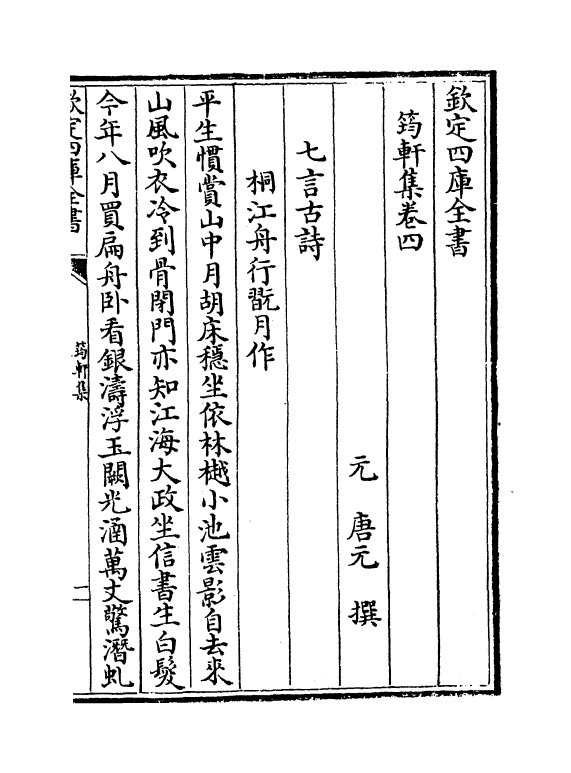 欽定四庫全書
筠軒集卷四
元 唐元 撰
七言古詩
桐江舟行翫月作
平生慣賞山中月胡床穩坐依林樾小池雲影自去來
山風吹衣冷到骨閉門亦知江海大政坐信書生白髮
今年八月買扁舟卧看銀濤浮玉闕光涵萬丈驚潛虬
欽定四庫全書
筠軒集